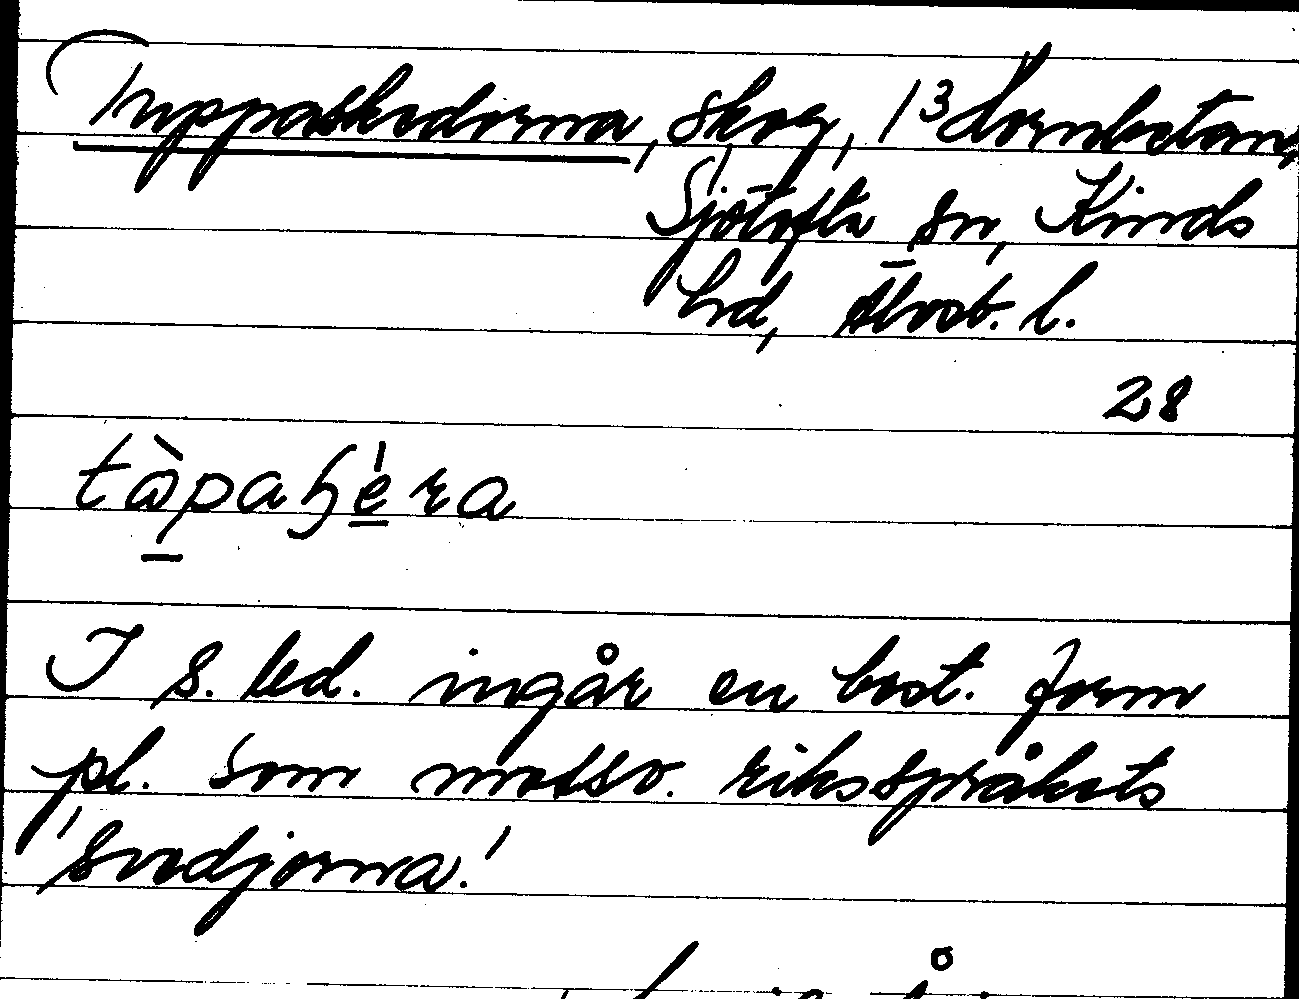 Tuppaskedorna, skog, 1³ Hornbetan,
Sjötofta sn, Kinds
hd, Älvsb. l.
28
tòpaɧéra
I s. led. ingår en best. form
pl. som motsv. riksspråkets
'svedjorna.'